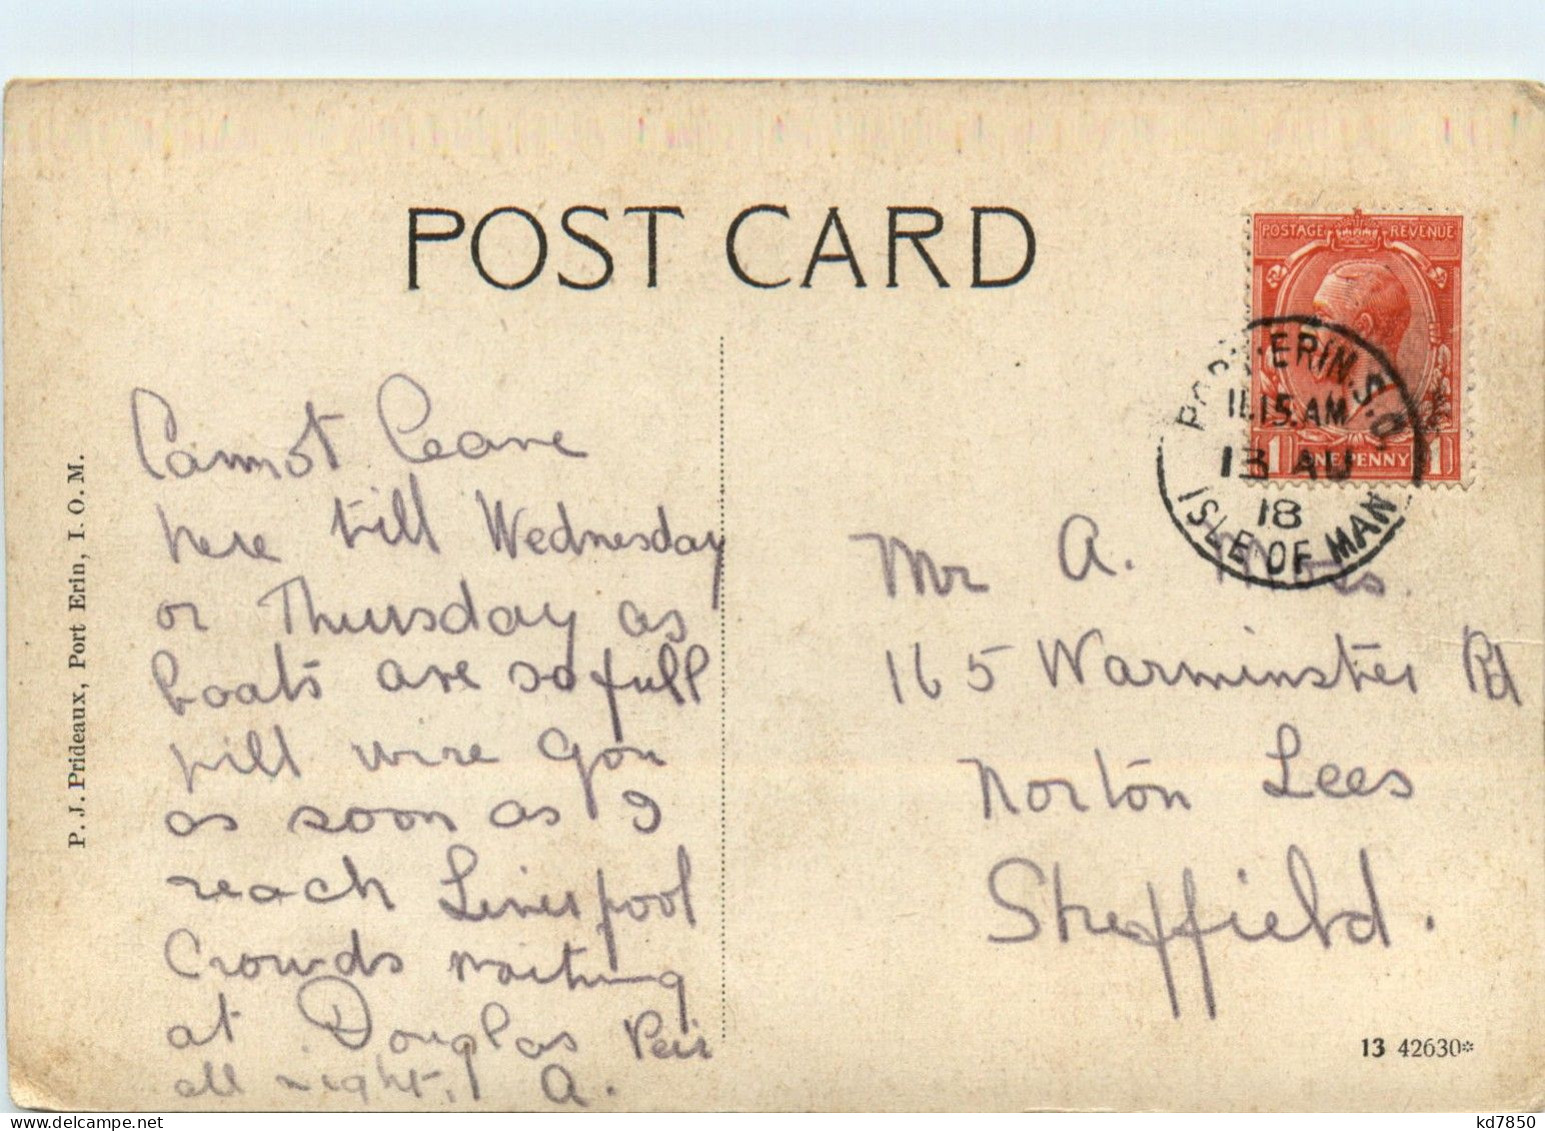 POST CARD
POSTAGE REVENUE
ONE PENNY
1 1
PORT-ERIN.S.O.
11.15.AM
13 AU
18
ISLE OF MAN
P. J. Prideaux, Port Erin, I. O. M.
Cannot leave
here till Wednesday
or Thursday as
boats are so full
will wire you
as soon as I
reach Liverpool
Crowds waiting
at Douglas Peir
all night. A.
Mr A.
165 Warminster Rd
Norton Lees
Sheffield.
13 42630*
kd7850